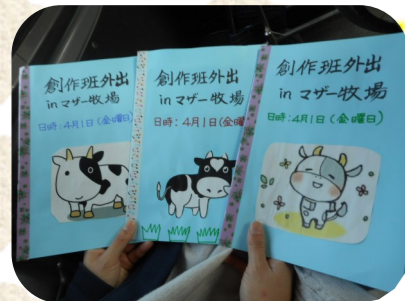 創作班外出
in マザー牧場
日時:4月1日(金曜日)
創作班外出
in マザー牧場
日時:4月1日(金曜
創作班外出
in マザー牧場
日時:4月1日(金曜日)